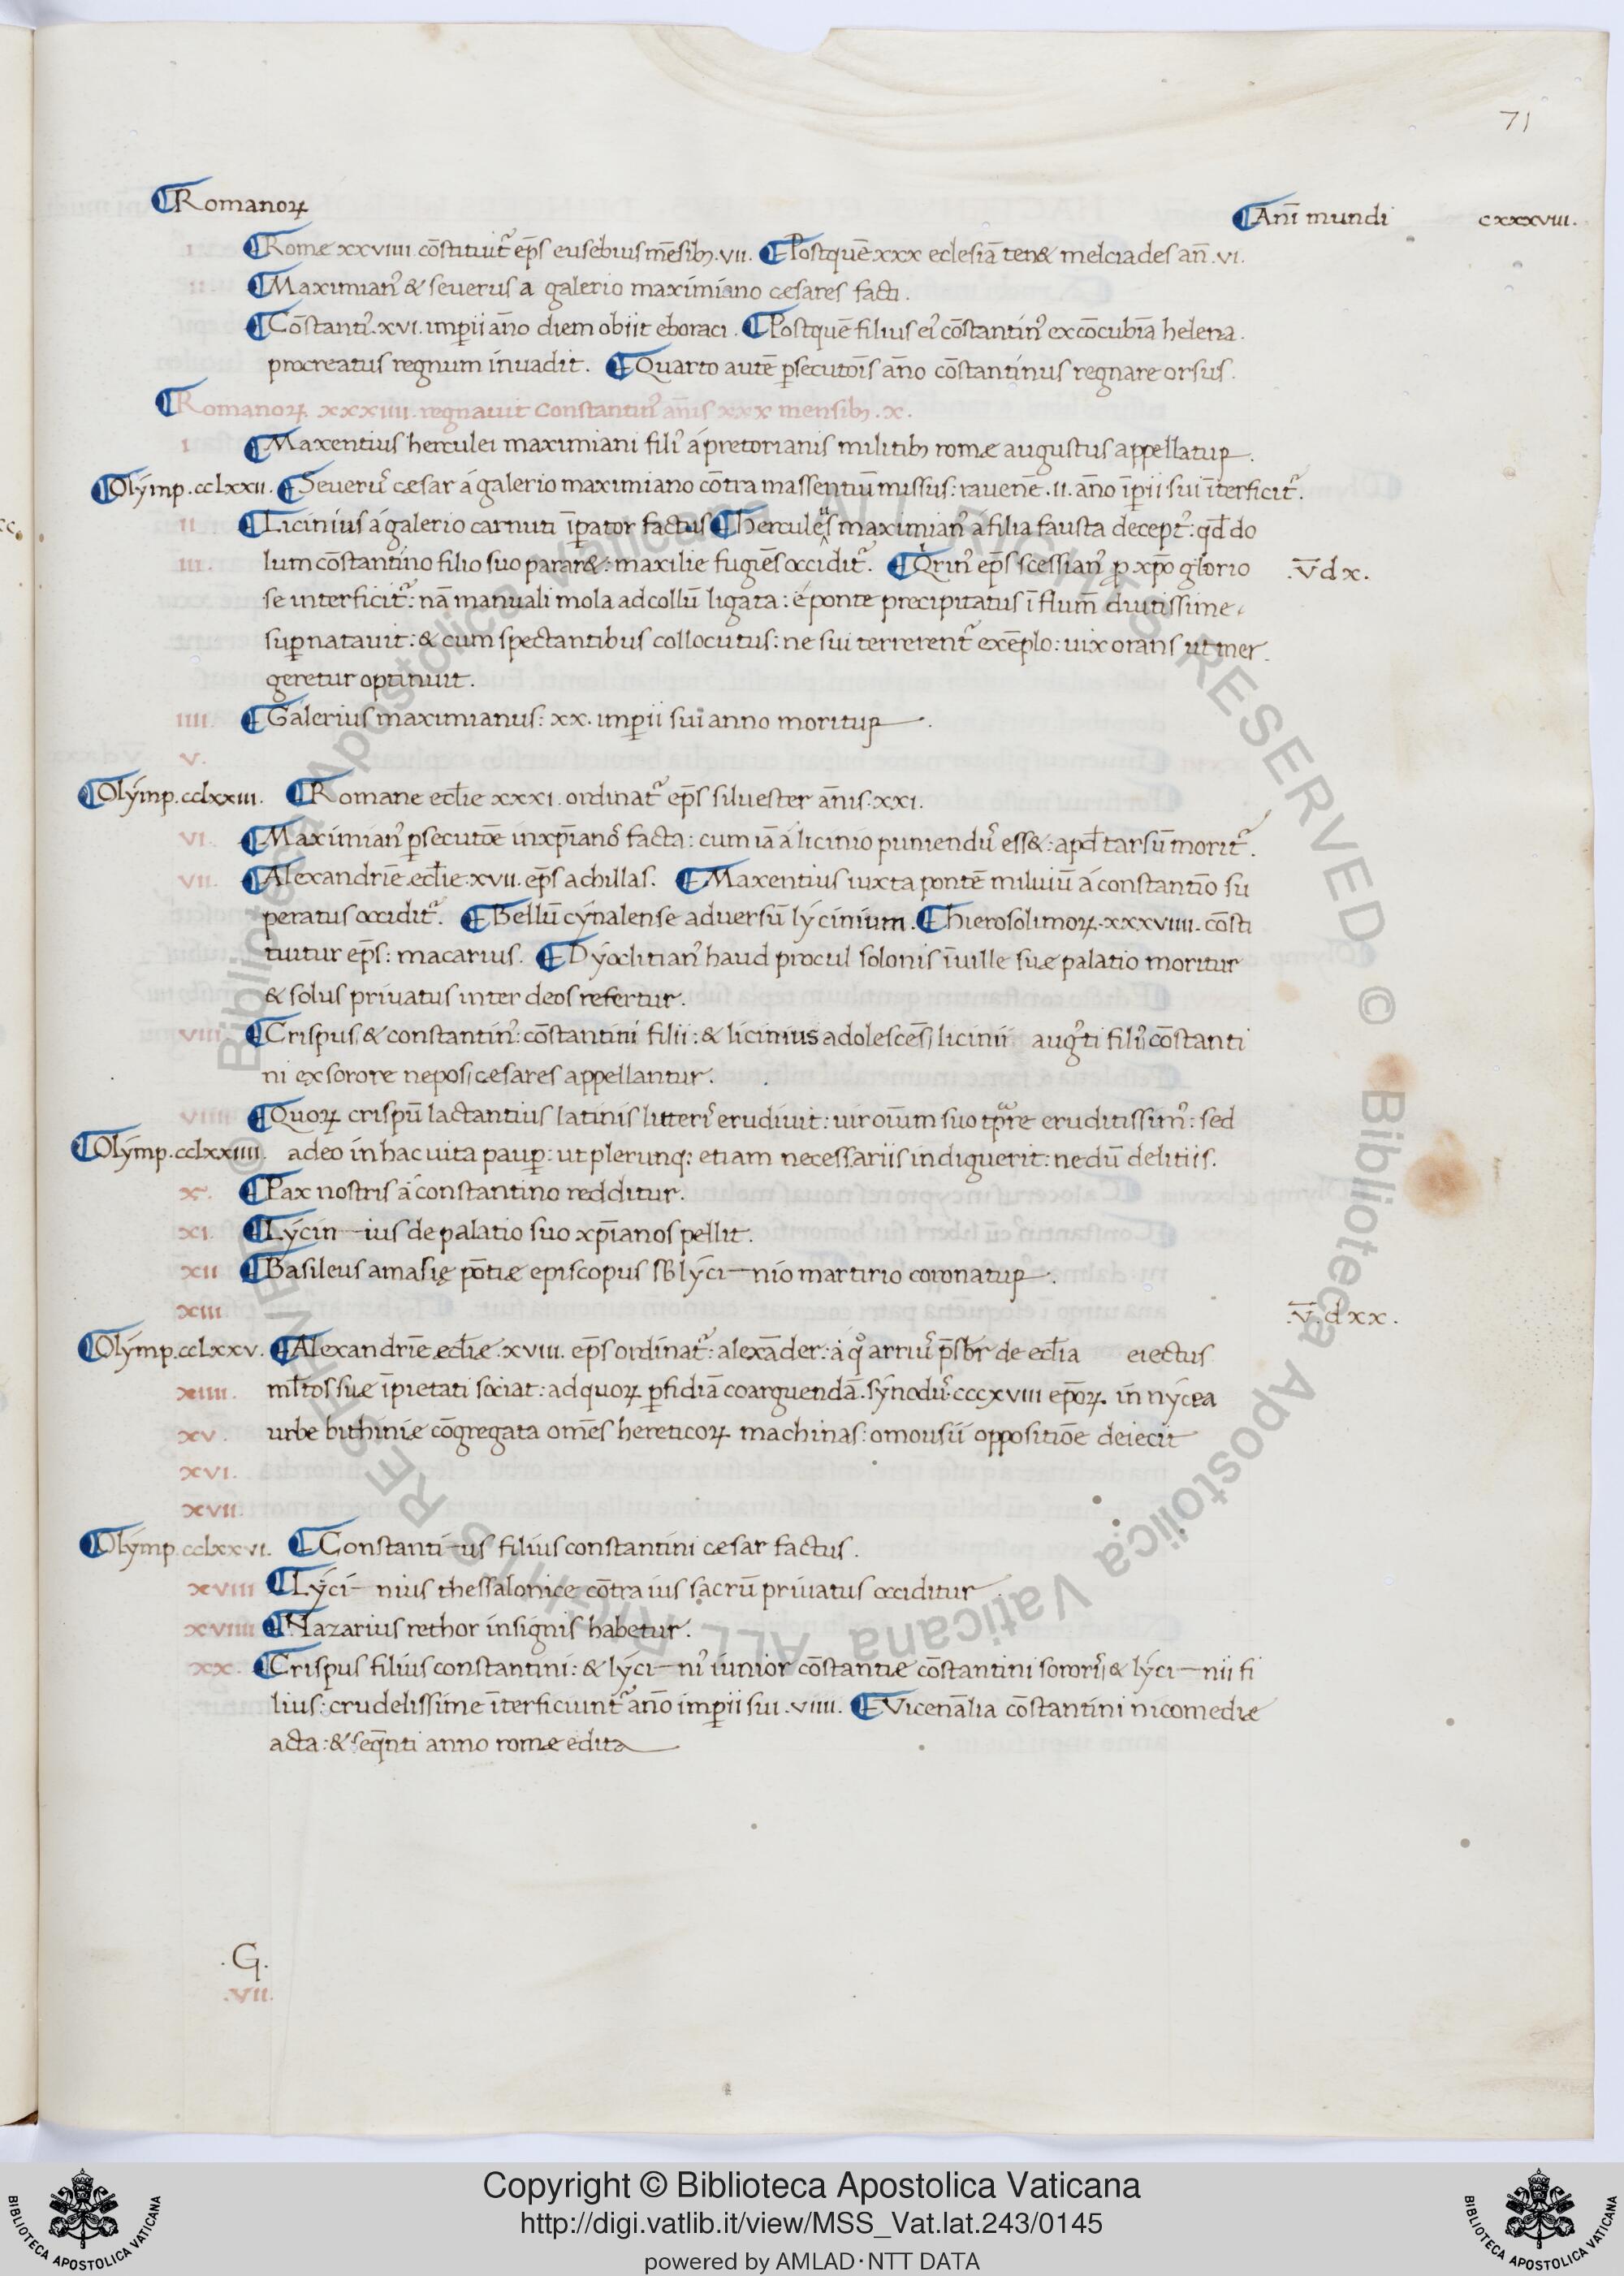 71
Romanoꝝ
Anī mundi cxxxviii.
i Romæ xxviiii. cōstituit᷑ ep̄s eusebius mēsibꝫ. vii. Postquē xxx eclesiā ten& melciades an̄. vi.
ii. Maximian᾽ & seuerus a galerio maximiano cæsares facti.
Cōstanti᾽. xvi. imꝑii āno diem obiit eboraci. Postquē filius ei᾽ cōstantin᾽ ex cōcubīa helena.
procreatus regnum inuadit. Quarto autē ꝑsecutoīs āno cōstantinus regnare orsus.
Romanoꝝ. xxxiiii. regnauit Constantin᾽ an̄is xxx mensibꝫ. x.
i Maxentius herculei maximiani fili᾽ á pretorianis militibꝫ romæ augustus appellatur.
Olýmp. cclxxii. Seueru᾽ cæsar á galerio maximiano cōtra massentiū missus: rauenē. ii. āno īꝑii sui īterficit᷑.
ii Licinius á galerio carnuti īꝑator factus Herculeus maximian᾽ a filia fausta decept᾽: qd̄ do
iii. lum cōstantino filio suo parar&: maxilie fugiēs occidit᷑. Qrin᾽ ep̄s scessian᾽ ꝓ xp̄o glorio .V̄ d x.
se interficit᷑: nā manuali mola ad collū ligata: é ponte precipitatus ī flum̄ diutissime
suꝑnatauit: & cum spectantibus collocutus: ne sui terrerent᷑ exēplo: uix orans ut mer
geretur optinuit.
iiii. Galerius maximianus: xx. imꝑii sui anno moritur.
v.
Olýmp. cclxxiii. Romane eccl̄ie xxxi. ordinat᷑ ep̄s siluester an̄is. xxi.
vi. Maximian᾽ ꝑsecutōe in xp̄iano᾽ facta: cum iā á licinio puniendu᾽ ess&: apd̄ tarsū morit᷑.
vii. Alexandrīe ecl̄ie. xvii. ep̄s achillas. Maxentius iuxta pontē miluiū á constantīo su
peratus occidit᷑. Bellū cýnalense aduersū lýcinium. Hierosolimoꝝ. xxxviiii. cōsti
tuitur ep̄s: macarius. Dýoclitian᾽ haud procul solonis ī uille suæ palatio moritur
& solus priuatus inter deos refertur.
viii. Crispus & constantin᾽: cōstantini filii: & licinius adolescēs licinii aug᾽ti fili᾽ cōstanti
ni ex sorore nepos cesares appellantur.
viiii Quoꝝ crispū lactantius latinis litteri᾽ erudiuit: uir oīum suo tp̄re eruditissim᾽: sed
Olýmp. cclxxiiii. adeo in hac uita pauꝑ: ut plerunqꝫ etiam necessariis indiguerit: nedū delitiis.
x. Pax nostris á constantino redditur.
xi. Lýcin—ius de palatio suo xp̄ianos pellit.
xii Basileus amasię pōtiæ episcopus sb̄ lýci—nio martirio coronatur.
xiii. .V̄. d x x.
Olýmp. cclxxv. Alexandrīe ecl̄iæ. xviii. ep̄s ordinat᷑: alexāder: á qͦ arriu᾽ p̄sbr̄ de ecl̄ia eiectus
xiiii. ml̄tos suæ īpietati sociat: ad quoꝝ ꝑfidiā coarguendā. sýnodu᾽. cccxviii ep̄oꝝ. in nýcea
xv. urbe bithinie cōgregata omēs hereticoꝝ machinas: omousii oppositiōe deiecit
xvi.
xvii.
Olýmp. cclxxvi. Constanti—us filius constantini cæsar factus.
xviii Lýci—nius thessalonice cōtra ius sacrū priuatus occiditur
xviiii Nazarius rethor insignis habetur.
xx. Crispus filius constantini: & lýci—ni᾽ iunior cōstantiæ cōstantini sorori᾽ & lýci—nii fi
lius: crudelissime īterficiunt᷑ āno imꝑii sui. viiii. Vicenālia cōstantini nicomediæ
acta: & seqn̄ti anno romæ edita
.G.
.vii.
© Biblioteca Apostolica Vaticana ALL RIGHTS RESERVED
© Biblioteca Apostolica Vaticana ALL RIGHTS RESERVED
BIBLIOTECA APOSTOLICA VATICANA
Copyright © Biblioteca Apostolica Vaticana
http://digi.vatlib.it/view/MSS_Vat.lat.243/0145
powered by AMLAD·NTT DATA
BIBLIOTECA APOSTOLICA VATICANA